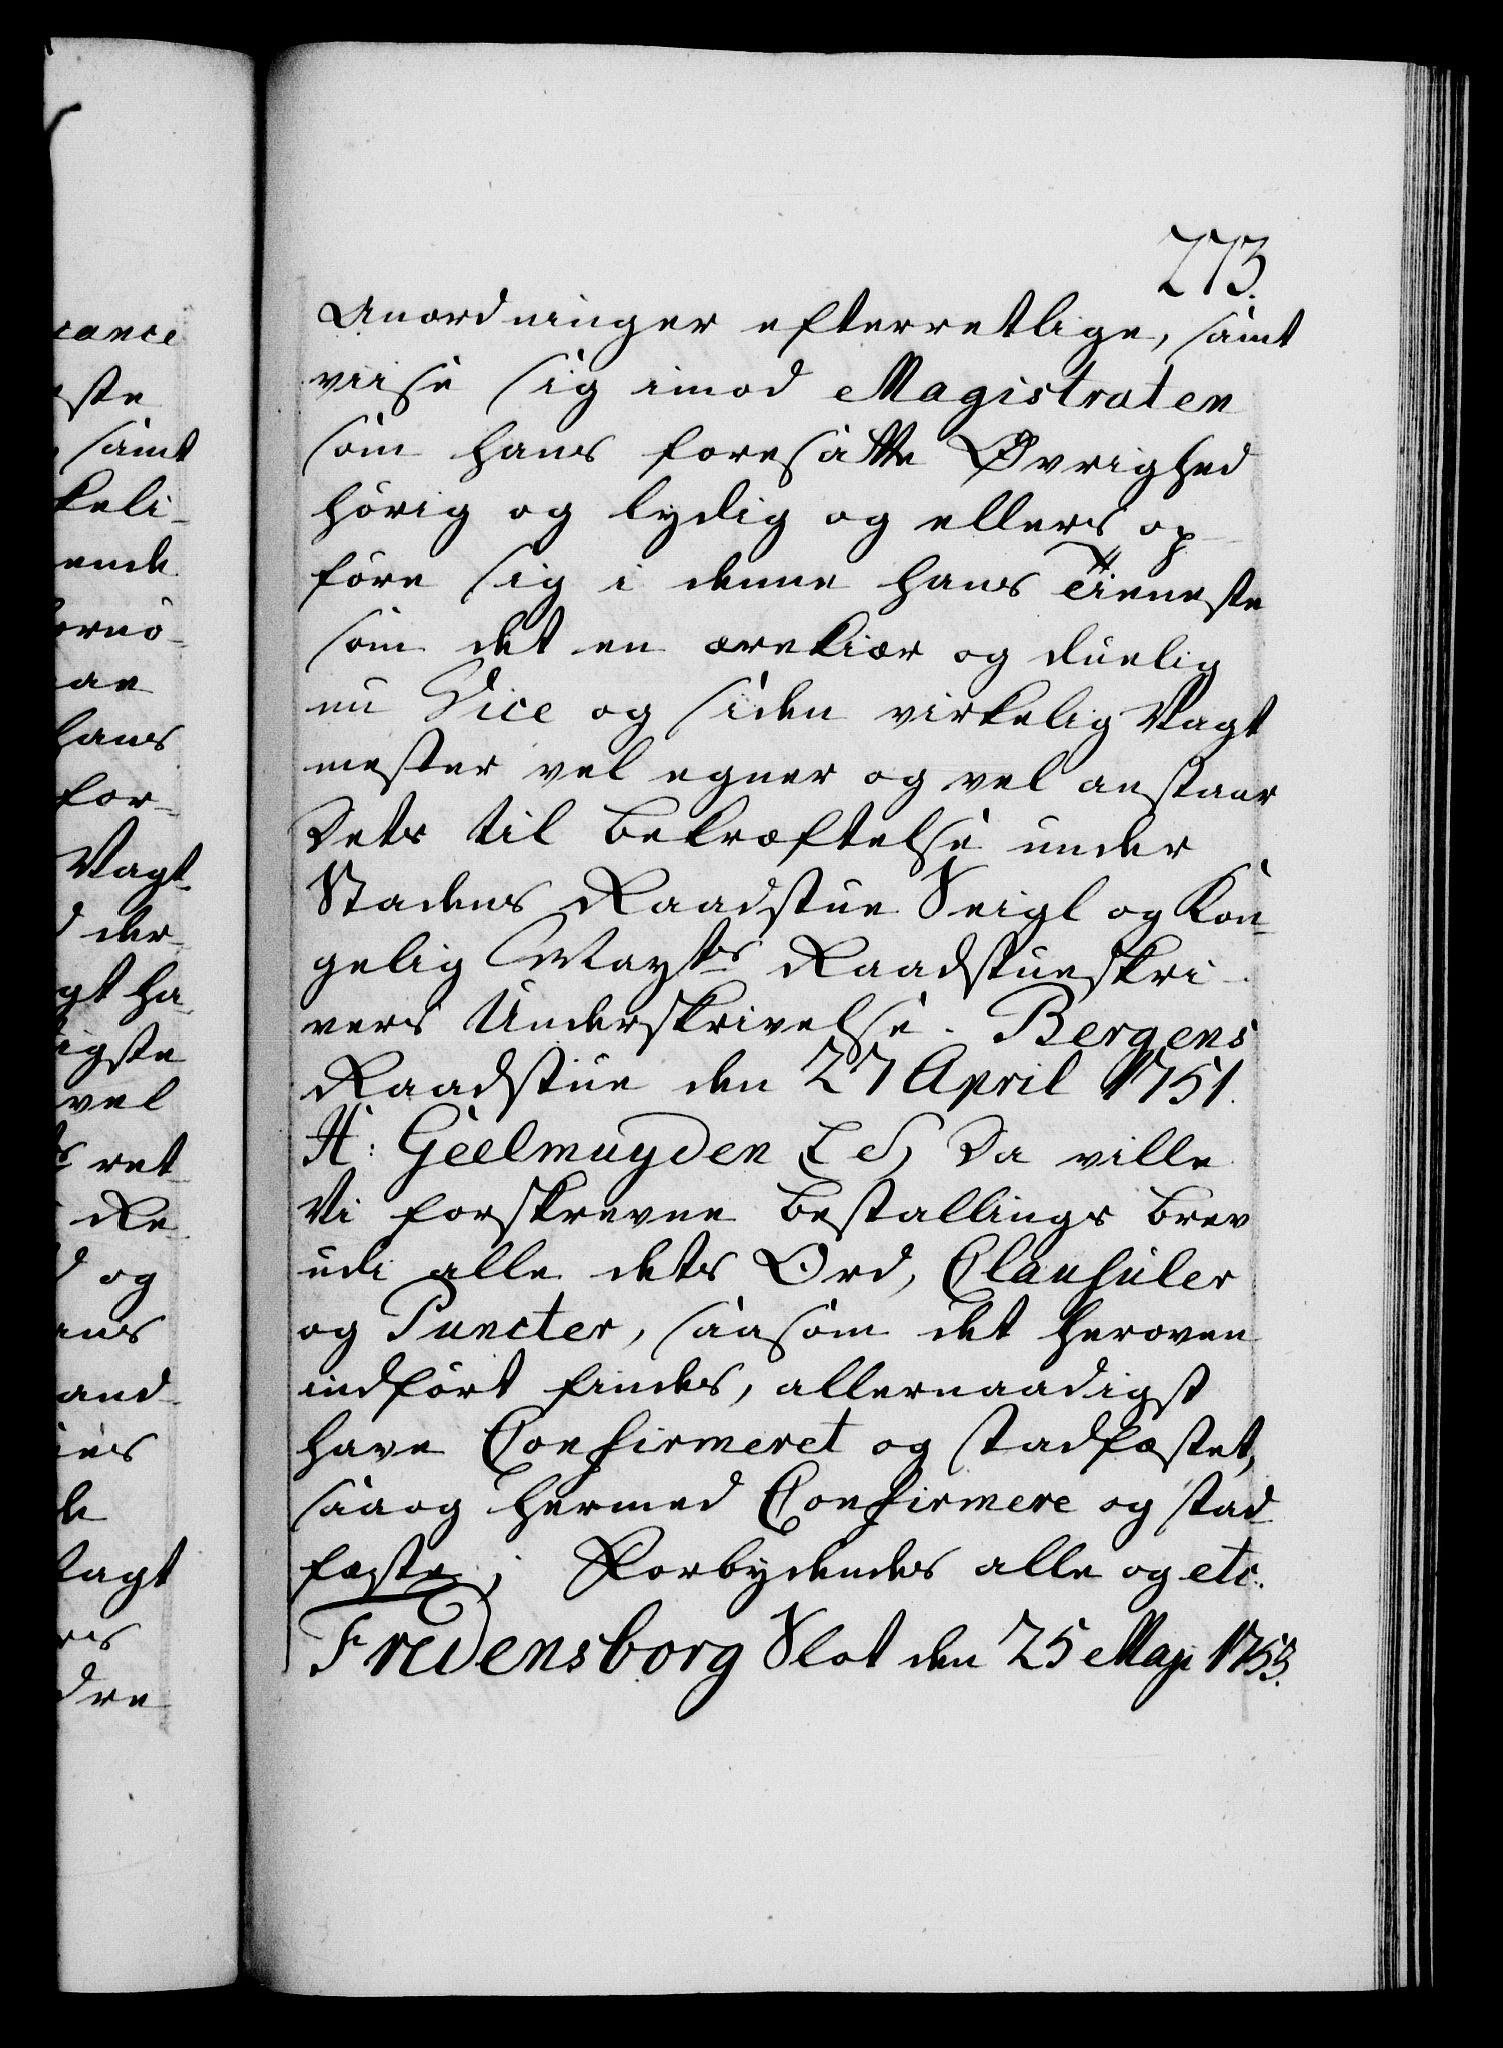 cance
ste
samt
keli-
ende
ornö-
ae
hans
for-
Vagt-
d der-
gt ha-
igste
vel
ret-
Re-
d og
ans
and-
de
Vagt
dre
273.
Anordninger efterretlige, samt
viise sig imod Magistraten
som hans foresatte Øvrighed
hörig og lydig og ellers op-
före sig i denne hans Tieneste
som det en ærekiær og duelig
nu Vice og siden virkelig Vagt
mester vel egner og vel anstaar
Dets til Bekræftelse under
Stadens Raadstue Seigl og Kon-
gelig Mayts Raadstueskri-
vers Underskrivelse. Bergens
Raadstue den 27 April 1751.
H: Geelmuyden L S, Da ville
Vi forskrevne Bestallings Brev
udi alle dets Ord, Clausuler
og Puncter, saasom det heroven
indfört findes, allernaadigst
have Confirmeret og stadfæstet,
saaog hermed Confirmere og stad-
fæste; Forbydendes alle og etc.
Fredensborg Slot den 25 Maji 1753.